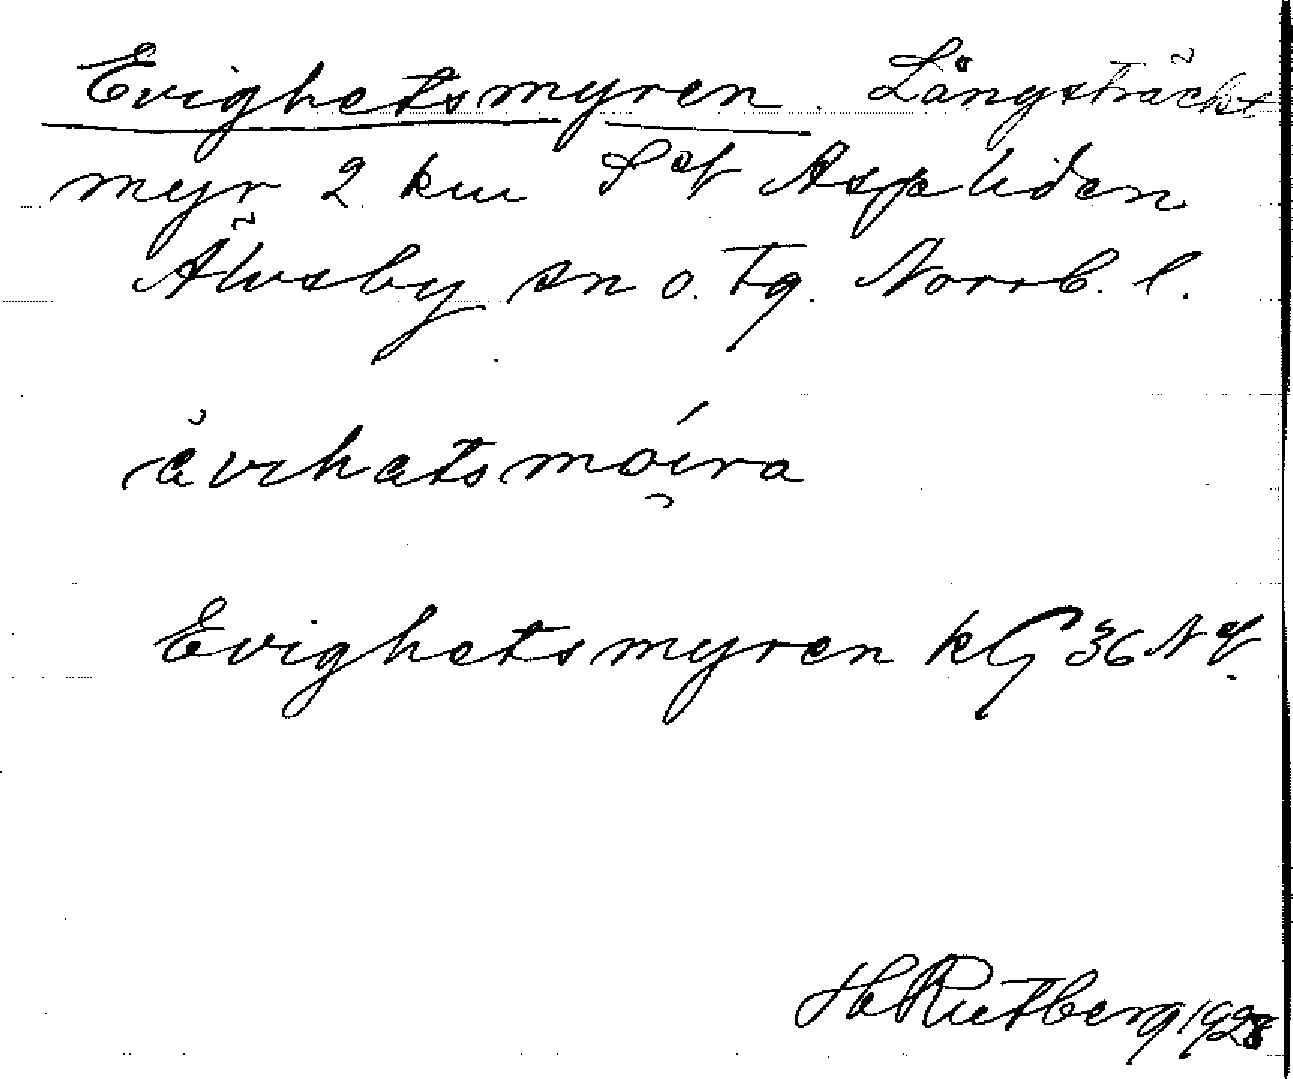 Evighetsmyren. Långsträckt
myr 2 km S ef Aspliden
Älvsby sn o. tg. Norrb. l.
åvihatsmóira
Evighetsmyren kG 36 N ef.
Hb Rutberg 1928